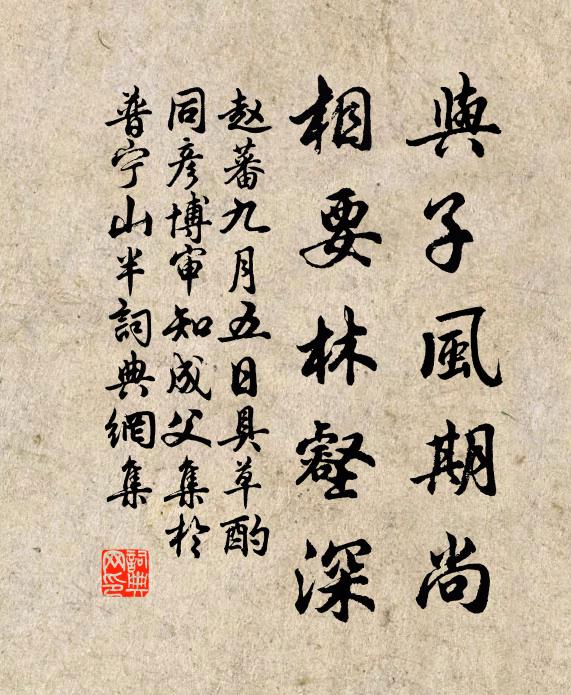 與子風期尚
相要林壑深
赵蕃九月五日具草酌
同彦博审知成父集於
普宁山半詞典網集
詞典网印